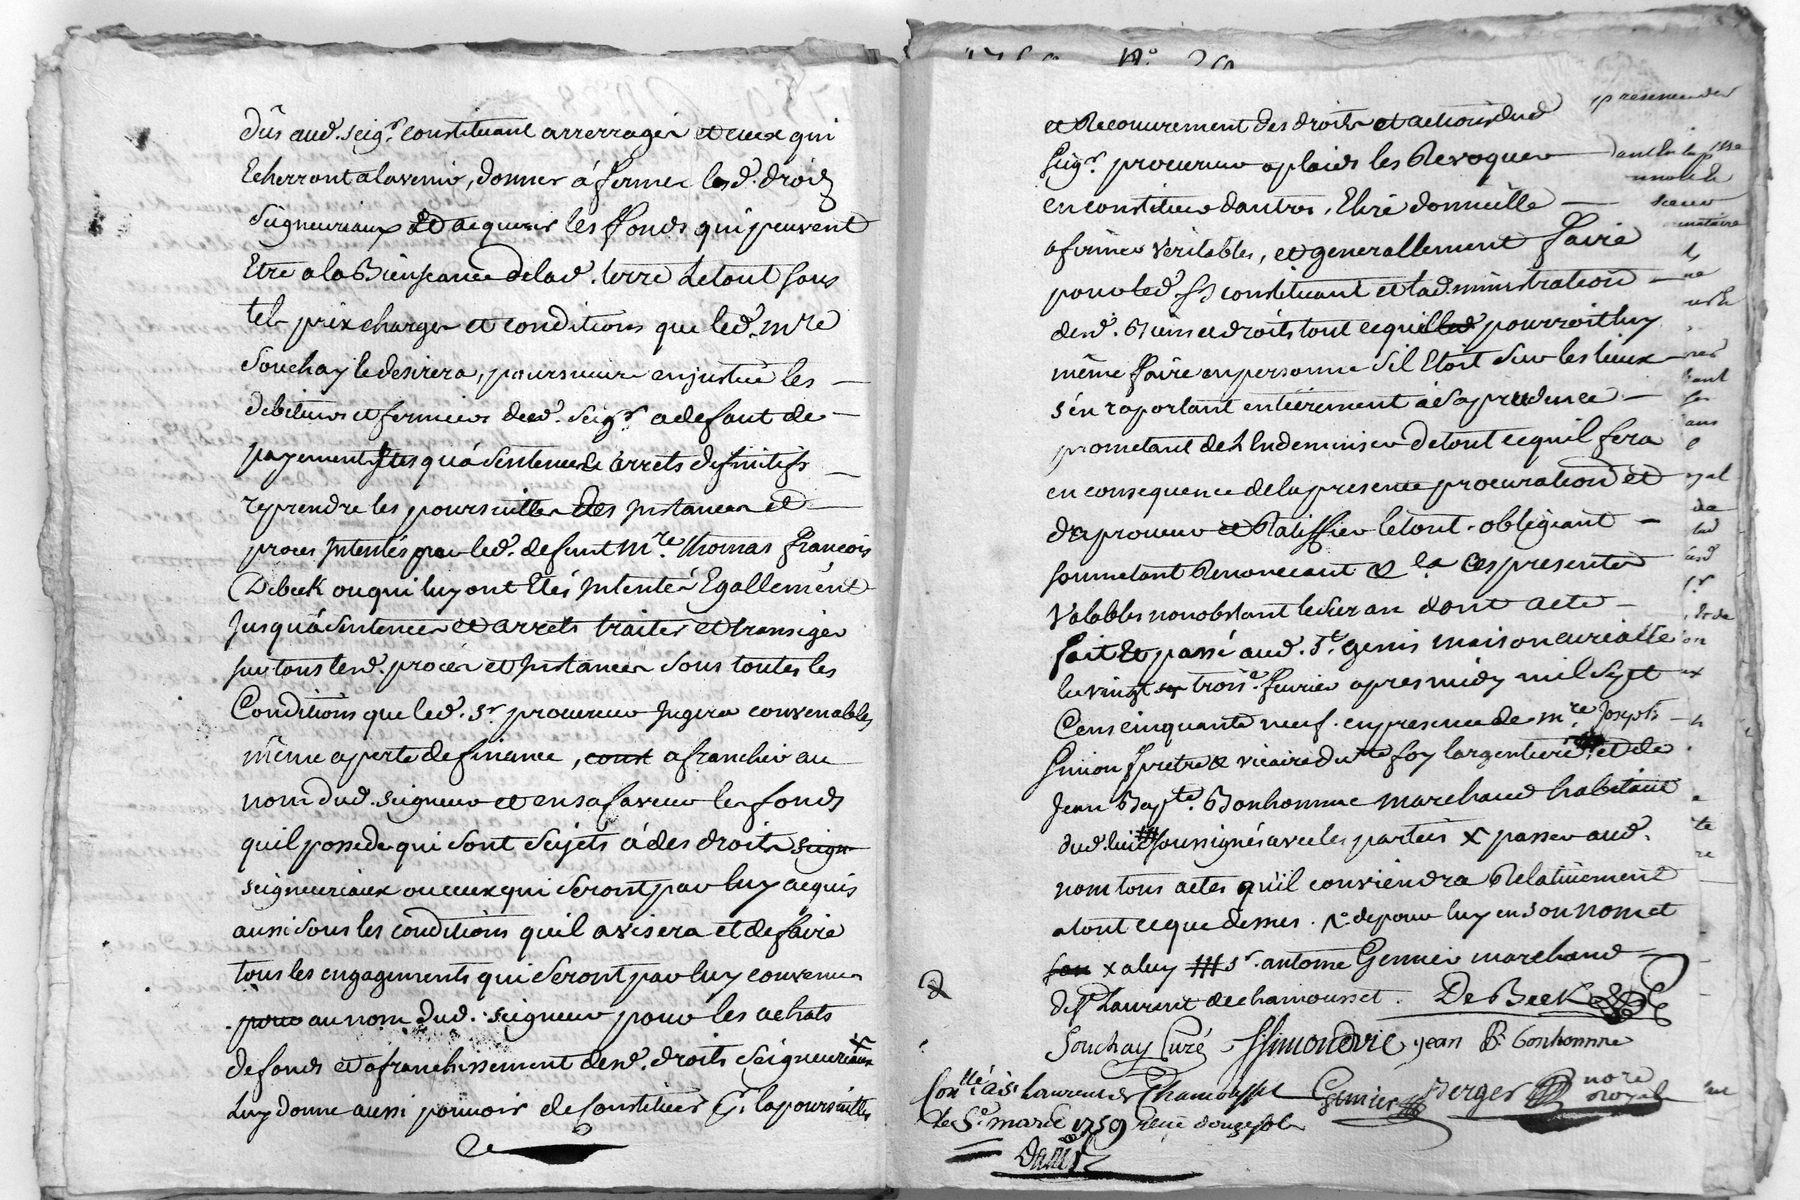 dûs aud. seigr. constituant arrerragés et ceux qui
Echerront alavenir, donner á fermer lesd. droits
Seigneuriaux Et acquerir les ffonds qui peuvent
Etre ala Bienseance delad. terre Letout sous
tels prix charges et conditions que led. mre
Souchay le desirera, poursuivre enjustice les
debiteurs et fermiers dud. Seigr. adefaut de
payement Jusqu'á Sentences & arrets definitifs
reprendre les poursuittes des Instances et
proces Intentés par led. defunt mre. thomas françois
DeBeek ou qui luy ont Etés Intentés Egallement
Jusquá Sentences et arrets traiter et transiger
sur tous lesd. procés et Instances Sous toutes les
Conditions que led. sr. procureur Jugera convenables
même a perte de finance, affranchir au
nom dud. seigneur et en sa faveur les fonds
quil possede qui sont Sujets á des droits seign
seigneuriaux ou ceux qui seront par luy acquis
aussi sous les conditions quil avisera et de faire
tous les engagements qui seront par luy convenus
pour au nom dud. seigneur pour les achats
de fonds et affranchissement desd. droits Seigneuriaux
Luy donne aussi pouvoir de Constituer pr. la poursuitte
1759 No. 29
et Recouvrement des droits et actions dud
Seigr. procureur a plaids les Revoquer
en constituer dautres, Elire domicille
afirmer veritables, et generallement faire
pour led. sr constituant et ladministration
desd. Biens et droits tout cequil pourroit luy
même faire en personne sil Etoit sur les lieux
s'en raportant entiérement á sa prudence
prometant de L'Indemniser de tout cequil fera
en consequence de la presente procuration et
daprouver et Ratiffier le tout. obligeant
soumetant Renonceant & la Ces presentes
Valables nonobstant le sur an dont acte
fait Et passé aud. St. genis maison curialle
le vingt trois. fevrier apres midy mil sept
Cens cinquante neuf. en presence de mre. Joseph
Simon pretre & vicaire du ste foy largentiere et de
Jean Bapte. Bonhomme marchand habitant
dud. lieu soussignés avec les parties x passer aud.
nom tous actes qu'il conviendra Relativement
a tout ceque dessus. & de pour luy en son nom et
x a luy sr. antoine Gennier marchand
de St Laurent de chamousset. De Beek
Souchay Curé Simond vic jean B. bonhomme
Conllé á St Laurent de Chamousset Genier Berger nore Royal
Le 5e. mars 1759 reçu douze sols